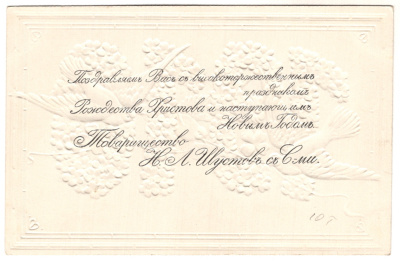 Поздравляемъ Васъ съ высокоторжественнымъ
праздникомъ
Рождества Христова и наступающимъ
Новымъ Годомъ.
Товарищество
Н. Л. Шустовъ съ С-ми.
10 г